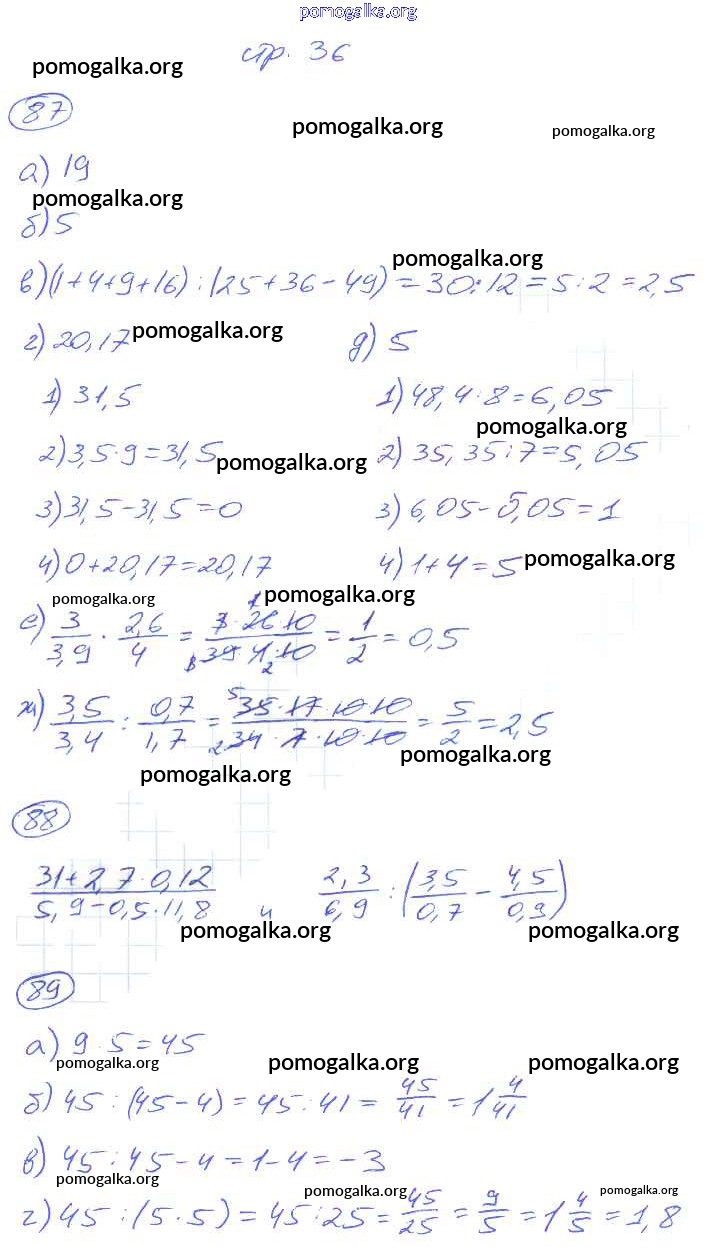 pomogalka.org
стр. 36
pomogalka.org
87
pomogalka.org
pomogalka.org
а) 19
pomogalka.org
б) 5
pomogalka.org
в) (1+4+9+16) : (25+36-49) = 30:12 = 5:2 = 2,5
г) 20,17
pomogalka.org
1) 31,5
2) 3,5·9=31,5
pomogalka.org
3) 31,5-31,5=0
4) 0+20,17=20,17
д) 5
1) 48,4:8=6,05
pomogalka.org
2) 35,35:7=5,05
3) 6,05-5,05=1
4) 1+4=5
pomogalka.org
pomogalka.org
pomogalka.org
е) 3/3,9 · 2,6/4 = 3·26·10/39·4·10 = 1/2 = 0,5
ж) 3,5/3,4 : 0,7/1,7 = 35·17·10·10/34·7·10·10 = 5/2 = 2,5
pomogalka.org
pomogalka.org
88
31+2,7·0,12/5,9-0,5·11,8 и 2,3/6,9 : (3,5/0,7 - 4,5/0,9)
pomogalka.org
pomogalka.org
89
а) 9·5=45
pomogalka.org
pomogalka.org
pomogalka.org
б) 45 : (45-4) = 45:41 = 45/41 = 1 4/41
в) 45:45-4=1-4=-3
pomogalka.org
pomogalka.org
pomogalka.org
г) 45 : (5·5) = 45:25 = 45/25 = 9/5 = 1 4/5 = 1,8